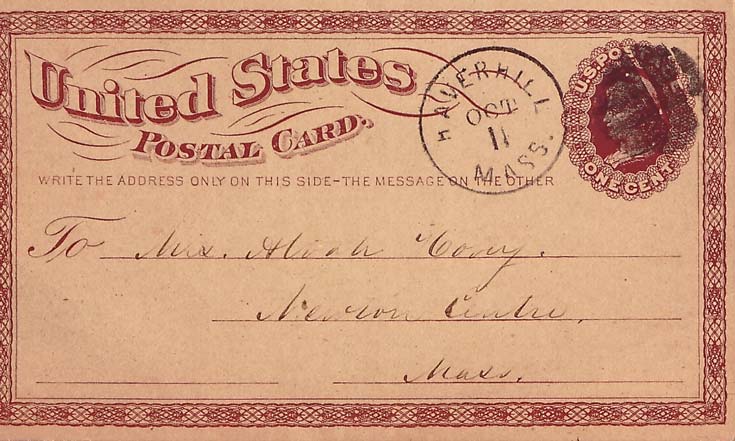 United States
POSTAL CARD.
WRITE THE ADDRESS ONLY ON THIS SIDE–THE MESSAGE ON THE OTHER
HAVERHILL
OCT
11
MASS.
U.S. POSTAGE
ONE CENT
To Mrs. Alvah
Newton Centre,
Mass.